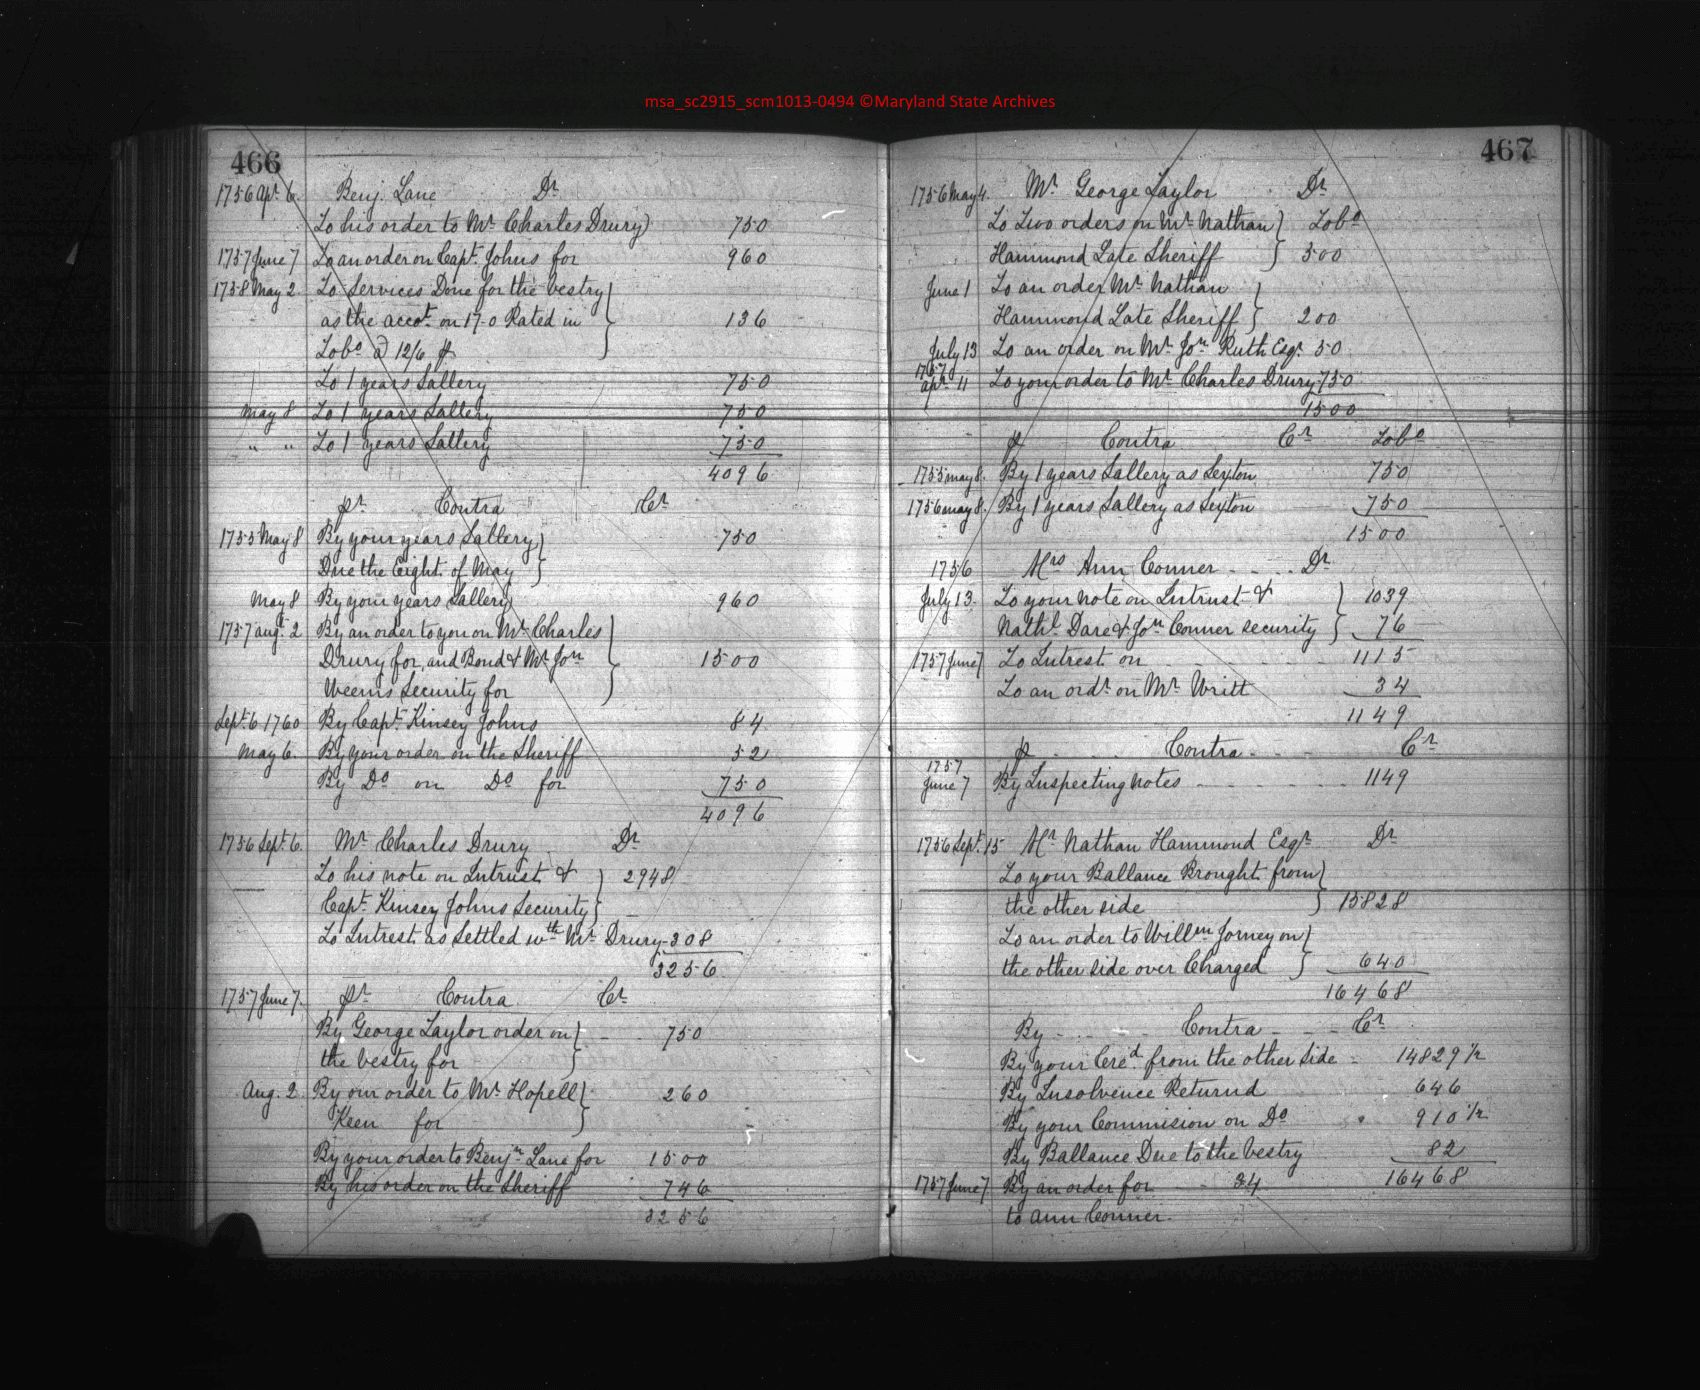 msa_sc2915_scm1013-0494 ©Maryland State Archives
466
1756 Apr. 6. Benj. Lane Dr
To his order to Mr Charles Drury 750
1757 June 7 To an order on Capt. Johns for 960
1758 May 2 To Services Done for the Vestry
as the accot. on 17-0 Rated in 136
Tobo @ 12/6 p
To 1 years Sallery 750
May 8 To 1 years Sallery 750
" " To 1 years Sallery 750
4096
pr Contra Cr
1755 May 8 By your years Sallery 750
Due the Eight of May
May 8 By your years Sallery 960
1757 aug. 2 By an order to you on Mr Charles
Drury for, and Bond & Mr Jon 1500
Weems Security for
Sept. 6 1760 By Capt. Kinsey Johns 84
May 6. By your order on the Sheriff 52
By Do on Do for 750
4096
1756 Sept. 6. Mr Charles Drury Dr
To his note on Intrust & 2948
Capt. Kinsey Johns Security
To Intrest as Settled wth Mr Drury 308
3256
1757 June 7. pr Contra Cr
By George Taylor order on 750
the Vestry for
Aug. 2 By our order to Mr Hopell 260
Keen for
By your order to Benjn Lane for 1500
By his order on the Sheriff 746
3256
467
1756 May 4. Mr George Taylor Dr
To Two orders on Mr Nathan Tobo
Hammond Late Sheriff 500
June 1 To an order Mr Nathan
Hammond Late Sheriff 200
July 13 To an order on Mr Jon Ruth Esqr 50
1757
apr. 11 To your order to Mr Charles Drury 750
1500
p Contra Cr Tobo
1755 may 8. By 1 years Sallery as Sexton 750
1756 may 8. By 1 years Sallery as Sexton 750
1500
1756 Mrs Ann Conner Dr
July 13. To your Note on Intrust & 1039
Nathl Dare & Jon Conner security 76
1757 June 7 To Intrest on 1115
To an ordr on Mr Writt 34
1149
p Contra Cr
1757
June 7 By Inspecting Notes 1149
1756 Sept. 15 Mr Nathan Hammond Esqr Dr
To your Ballance Brought from
the other side 15828
To an order to Willm Jorney on
the other side over Charged 640
16468
By Contra Cr
By your Cred from the other Side 14829 1/2
By Insolvence Returnd 646
By your Commision on Do 910 1/2
By Ballance Due to the Vestry 82
1757 June 7 By an order for 34 16468
to Ann Conner.